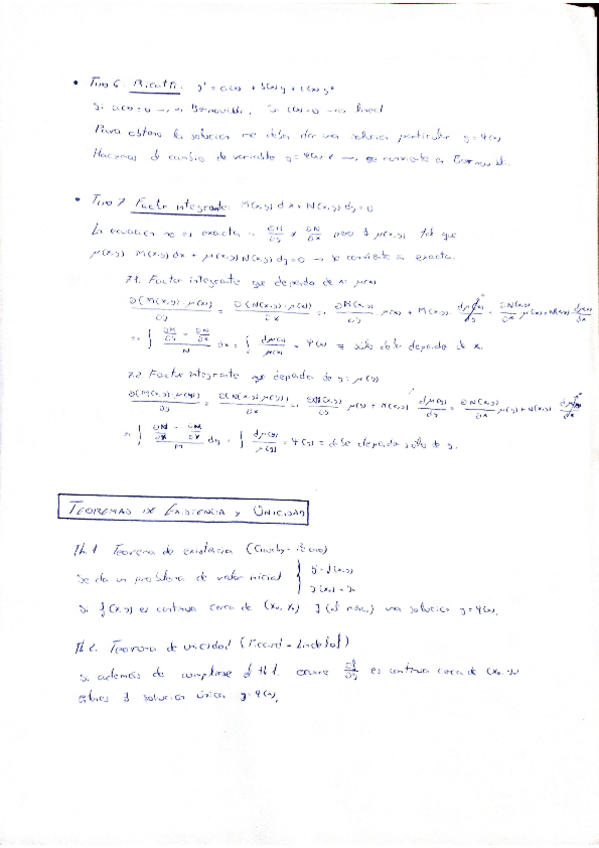 • Tipo 6. Ricatti: y' = a(x) + b(x)y + c(x)y²
Si a(x)=0 → Bernouilli. Si c(x)=0 → lineal
Para obtener la solución me deben dar una solución particular y=φ(x)
Hacemos el cambio de variable y=φ(x)+ → se convierte en Bernouilli.
• Tipo 7. Factor integrante: M(x,y)dx + N(x,y)dy=0
La ecuación no es exacta ∂M/∂y ≠ ∂N/∂x pero ∃ μ(x,y) tal que
μ(x,y) M(x,y)dx + μ(x,y)N(x,y)dy=0 → se convierte en exacta.
7.1. Factor integrante que dependa de x: μ(x)
∂(M(x,y)·μ(x))/∂y = ∂(N(x,y)·μ(x))/∂x → ∂M(x,y)/∂y μ(x) + M(x,y) dμ(x)/dy = ∂N(x,y)/∂x μ(x) + N(x,y) dμ(x)/dx
→ ∫ (∂M/∂y - ∂N/∂x)/N dx = ∫ dμ(x)/μ(x) = φ(x) = sólo debe depender de x.
7.2. Factor integrante que dependa de y: μ(y)
∂(M(x,y)·μ(y))/∂y = ∂(N(x,y)·μ(y))/∂x → ∂M(x,y)/∂y μ(y) + M(x,y) dμ(y)/dy = ∂N(x,y)/∂x μ(y) + N(x,y) dμ(y)/dx
→ ∫ (∂N/∂x - ∂M/∂y)/M dy = ∫ dμ(y)/μ(y) = φ(y) = debe depender sólo de y.
TEOREMAS DE EXISTENCIA Y UNICIDAD
Th.1 Teorema de existencia (Cauchy-Peano)
Se da un problema de valor inicial { y'=f(x,y)
y(x₀)=y₀
Si f(x,y) es continua cerca de (x₀,y₀) ∃ (al menos) una solución y=φ(x).
Th.2. Teorema de unicidad (Picard-Lindelöf)
Si además de cumplirse el Th1. ocurre ∂f/∂y es continua cerca de (x₀,y₀)
entonces ∃ solución única y=φ(x).